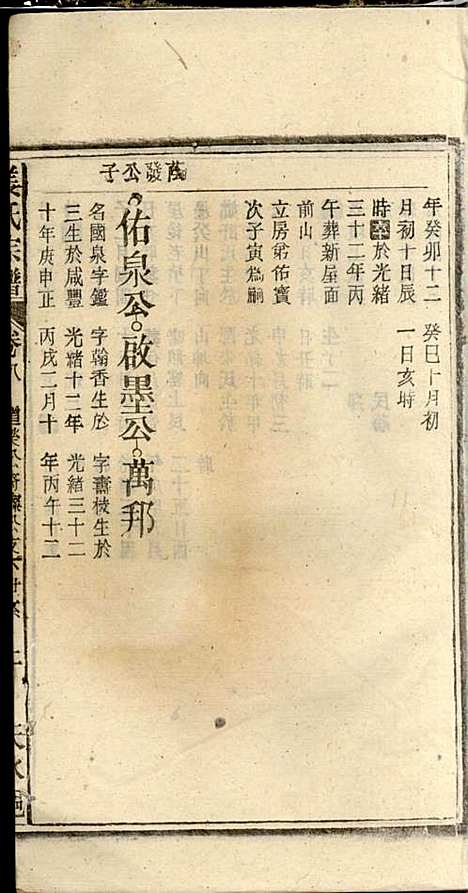 年癸卯十二 癸巳十月初
月初十日辰 一日亥時
時卒於光緒
三十二年丙
午葬新屋面
前山
立房弟佑寶
次子寅爲嗣
蔭發公子
佑泉公 啟墨公 萬邦
名國泉字鑑 字翰香生於 字壽棱生於
三生於咸豐 光緒十二年 光緒三十二
十年庚申正 丙戌二月十 年丙午十二
姜氏宗譜 卷八
天水